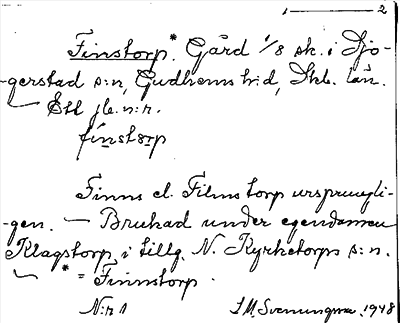 1 — 2
Finstorp.* Gård 1/8 sk. i Djo-
-gerstad s:n, Gudhems h:d, Skb. län.
— Ett jb.n:r.
finstorp
Finns el. Filmstorp ursprungli-
-gen. — Brukad under egendomen
Klagstorp, i tillg. N. Kyrketorps s:n.
— * = Finnstorp.
N:r 1 J.M. Svenungsson, 1948